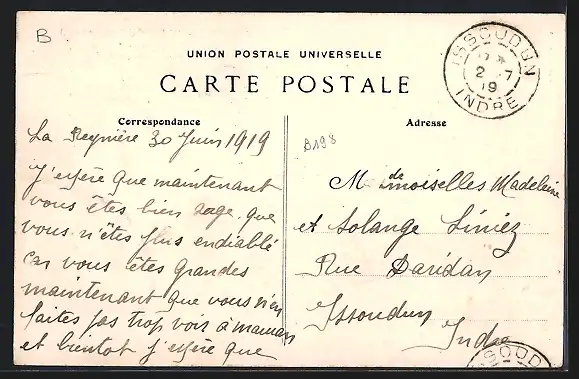 B
UNION POSTALE UNIVERSELLE
CARTE POSTALE
ISSOUDUN
2 - 7
19
INDRE
Correspondance
Adresse
La Reynière 30 Juin 1919
J'espère que maintenant
vous êtes bien sage, que
vous n'êtes plus endiablé
car vous êtes grandes
maintenant que vous n'en
faites pas trop voir à maman
et bientot j'espère que
B198
Mesdemoiselles Madeleine
et Solange Liniez
Rue Daridan
Issoudun
Indre
ISSOUD